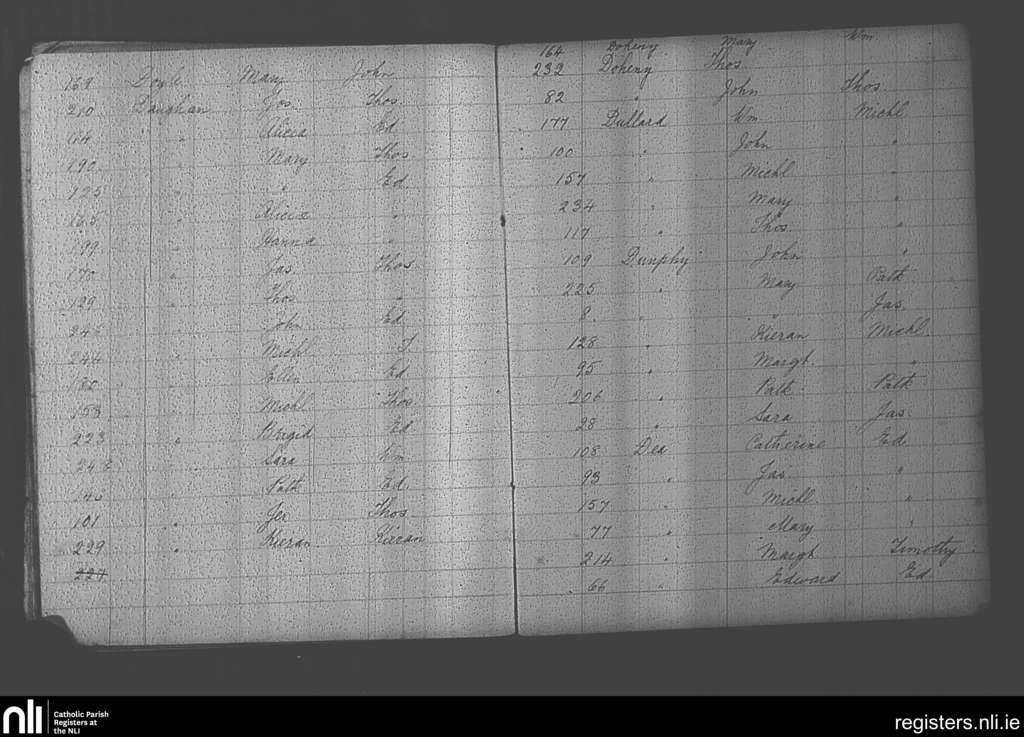 169 Doyle Mary John
210 Daughan Jos Thos
114 " " Alicia Ed
190 " Mary Thos
125 " " Ed
165 " Alicia "
199 " Hanna "
170 " Jas Thos
129 " Thos "
245 " John Ed
244 " Michl T
180 " Ellen Ed
158 " Michl Thos
223 " Brigid Ed
242 " Sara Wm
145 " Patk Ed
101 " Jer Thos
229 " Kieran Kieran
227
164 Doheny Mary Wm
232 Doheny Thos
82 " John Thos
177 Dullard Wm Michl
100 " John "
157 " Michl "
234 " Mary "
117 " Thos "
109 Dunphy John "
225 " Mary Patk
8 " " Jas
128 " Kieran Michl
95 " Margt "
206 " Patk Patk
28 " Sara Jas
108 Dea Catherine Ed
93 " Jas "
157 " Michl "
77 " Mary "
214 " Margt Timothy
66 " Edward Ed
nli Catholic Parish
Registers at
the NLI
registers.nli.ie